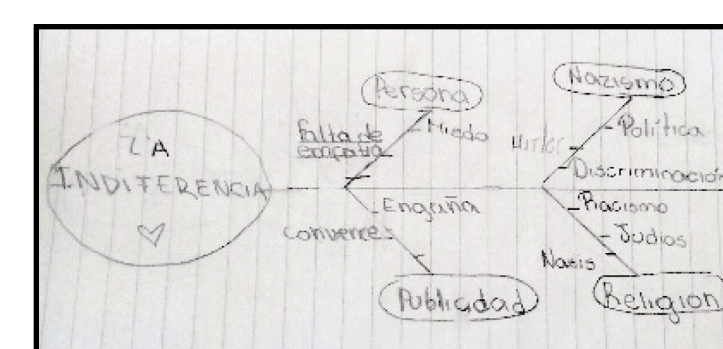 LA
INDIFERENCIA
Persona
falta de
empatia
Miedo
Engaña
convence
Publicidad
Nazismo
Hitler
Política
Discriminación
Racismo
Judios
Nasis
Religion